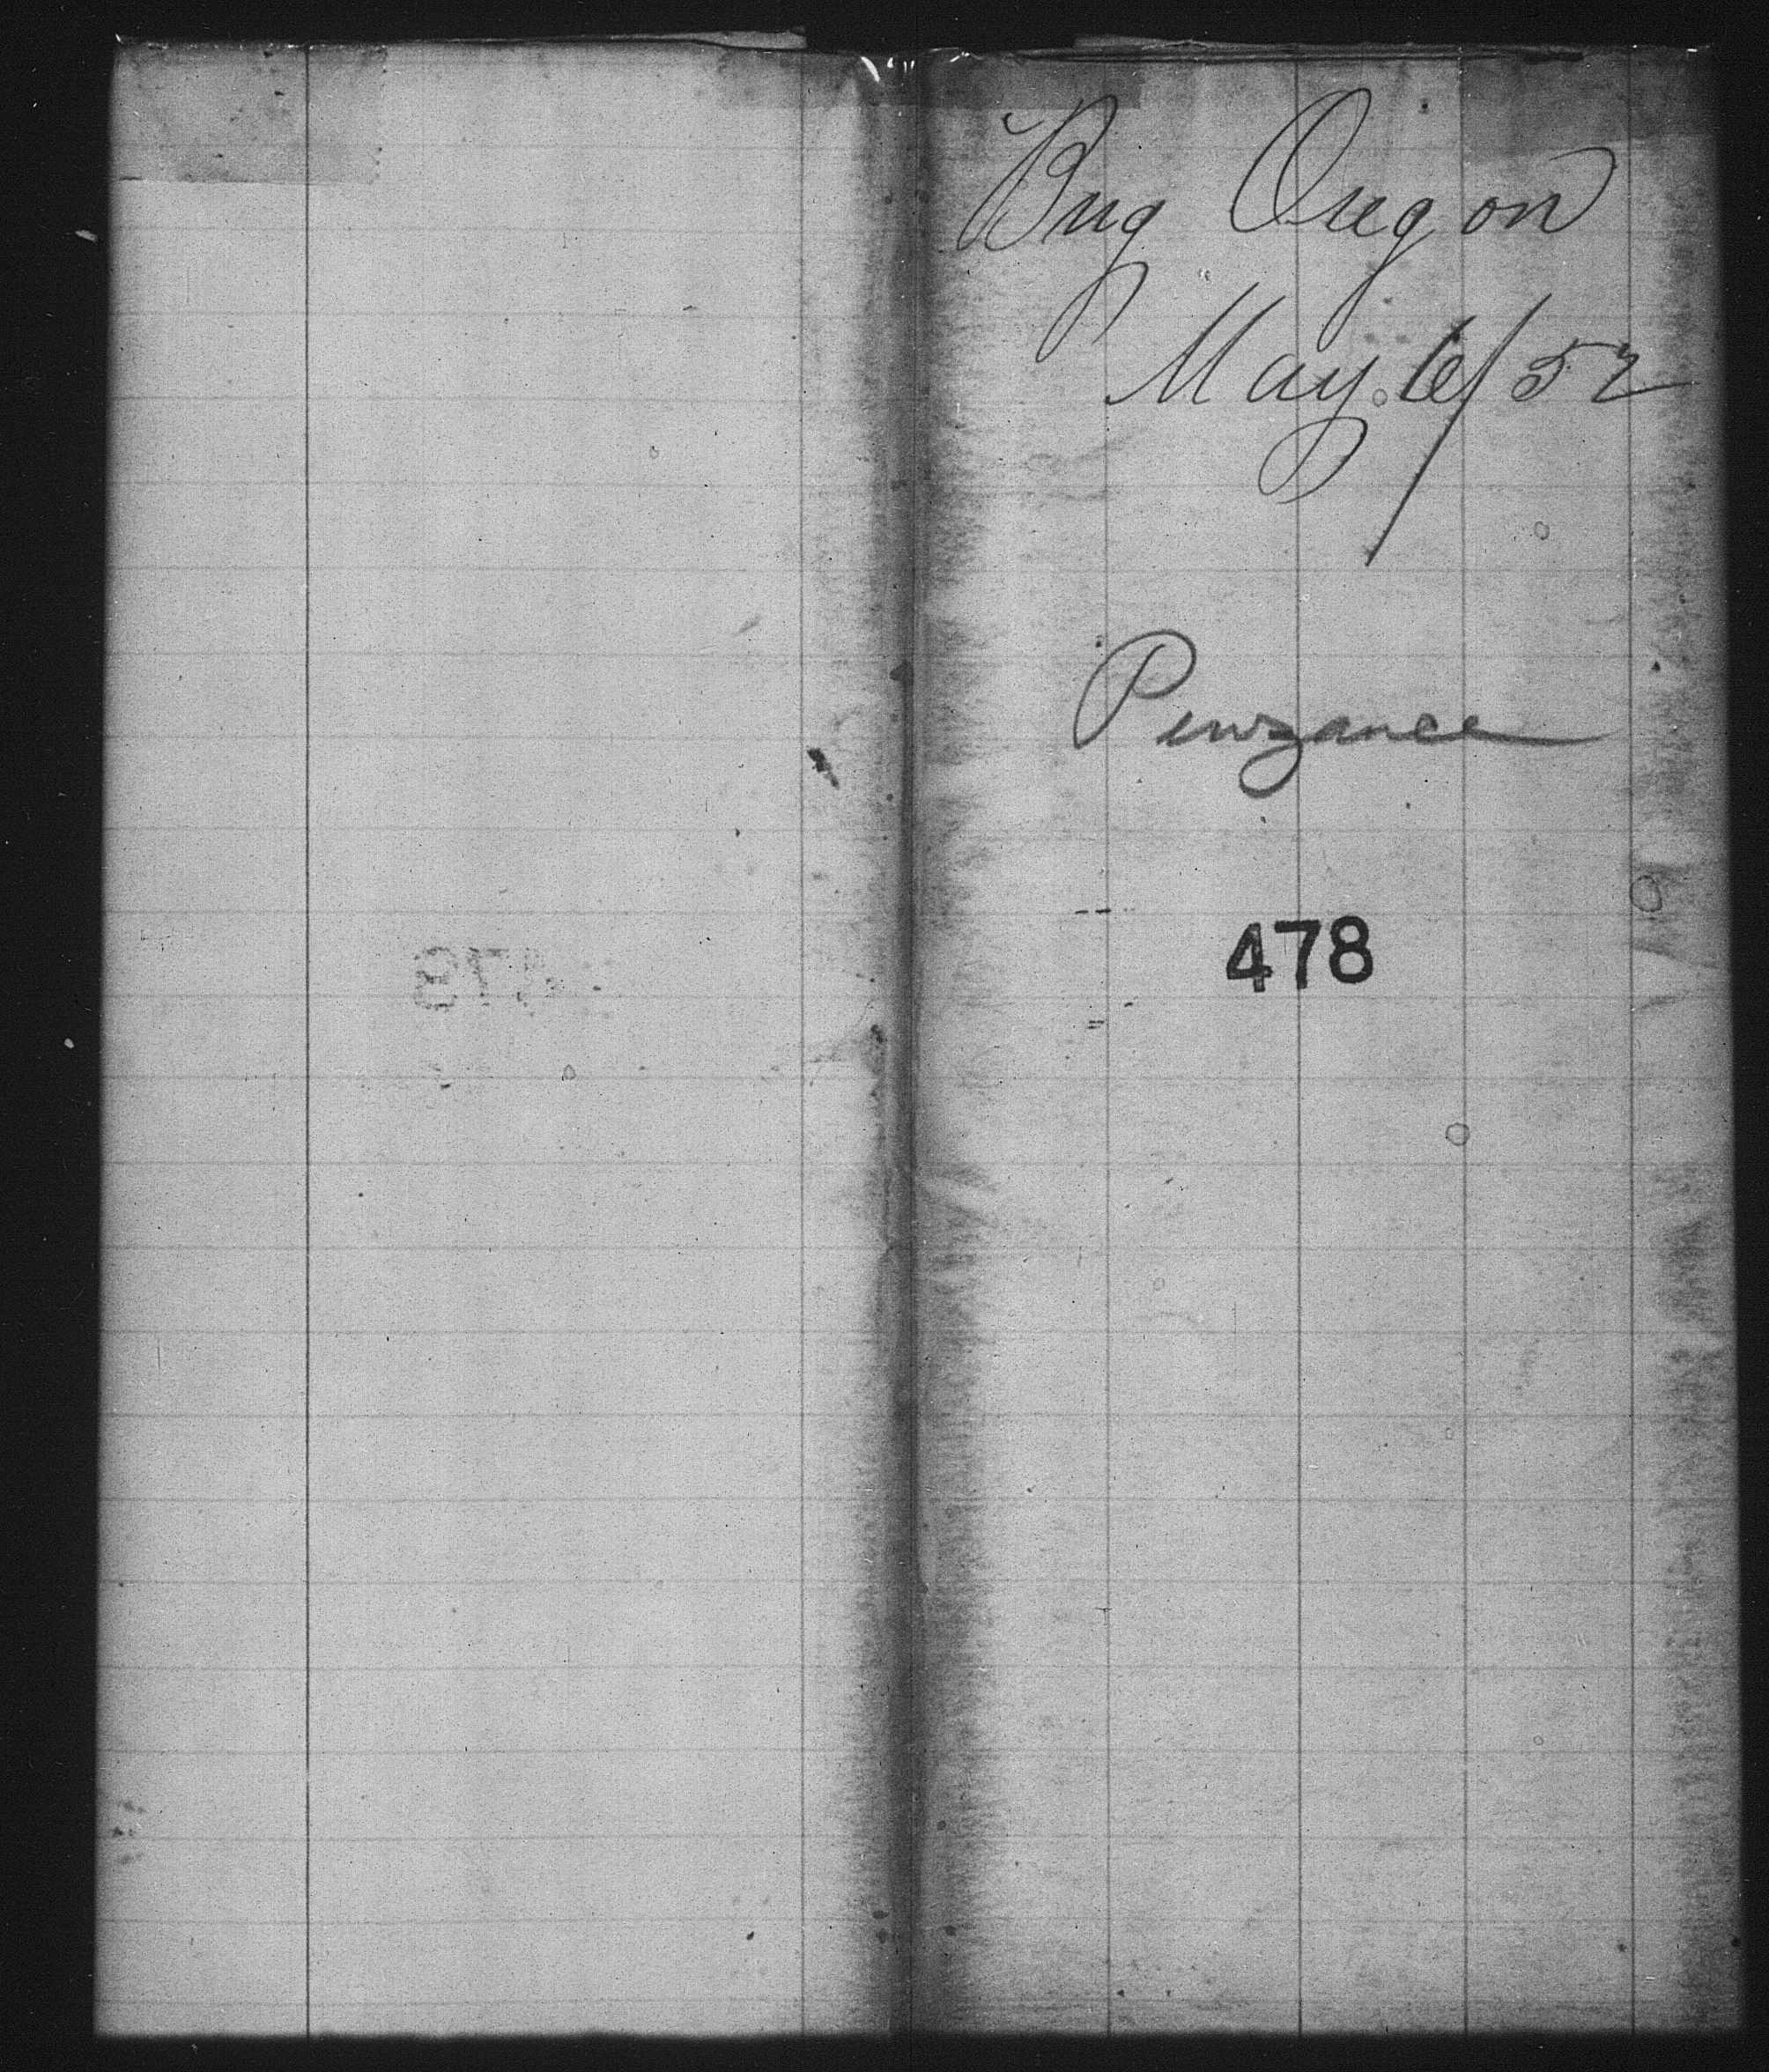 Brig Oregon
May 6/52
Penzance
478